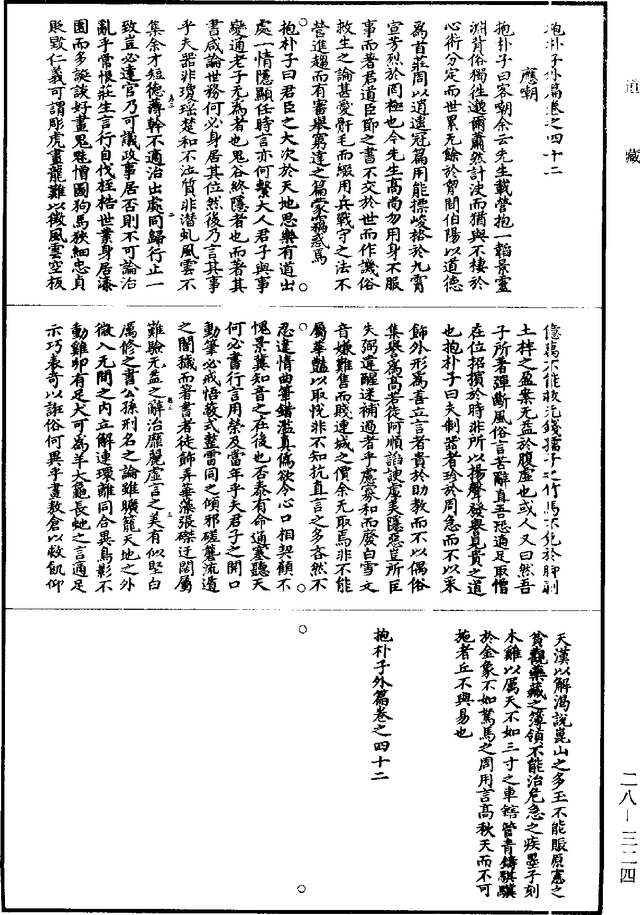 道藏
抱朴子外篇卷之四十二
應嘲
抱朴子曰客嘲余云先生載營抱一韜景靈
淵背俗獨往邈爾蕭然計決而猶與不棲於
心術分定而世累无餘於胷間伯陽以道德
爲首莊周以逍遥冠篇用能標峻格於九霄
宣芳烈於罔極也今先生高尚勿用身不服
事而著君道臣節之書不交於世而作譏俗
救生之論甚愛骭毛而綴用兵戰守之法不
營進趨而有審舉窮達之篇蒙竊惑焉
抱朴子曰君臣之大次於天地思樂有道出
處一情隱顯任時言亦何繫大人君子與事
變通老子无爲者也鬼谷終隱者也而著其
書咸論世務何必身居其位然後乃言其事
乎夫器非瓊瑶楚和不泣質非潜虬風雲不
集余才短德薄幹不適治出處同歸行止一
致豈必達官乃可議政事居否則不可論治
亂乎常恨莊生言行自伐桎梏世業身居漆
園而多誕談好畫鬼魅憎圖狗馬狹細忠貞
貶毀仁義可謂彫虎畫龍難以徵風雲空板
億萬不能救无錢孺子之竹馬不免於脚剥
土柈之盈案无益於腹虛也或人又曰然吾
子所著彈斷風俗言苦辭直吾恐適足取憎
在位招擯於時非所以揚聲發譽見貴之道
也抱朴子曰夫制器者珍於周急而不以采
飾外形爲善立言者貴於助教而不以偶俗
集譽爲高若徒阿順諂諛虛美隱惡豈所匡
失弼違醒迷補過者乎慮寡和而廢白雪之
音嫌難售而賤連城之價余无取焉非不能
屬華豔以取悅非不知抗直言之多吝然不
忍違情曲筆錯濫真偽欲令心口相契顧不
愧景冀知音之在後也否泰有命通塞聽天
何必書行言用榮及當年乎夫君子之開口
動筆必戒悟蔽式整雷同之傾邪磋礱流遁
之闇穢而著書者徒飾弄華藻張磔迂闊屬
難驗无益之辭治靡麗虛言之美有似堅白
厲修之書公孫刑名之論雖曠籠天地之外
微入无間之内立解連環離同合異鳥影不
動雞卵有足犬可爲羊大龜長虵之言適足
示巧表奇以誑俗何異乎畫敖倉以救飢仰
天漢以解渴說崑山之多玉不能賑原憲之
貧觀藥藏之簿領不能治危急之疾墨子刻
木雞以厲天不如三寸之車轄管青鑄騏驥
於金象不如駑馬之周用言高秋天而不可
施者丘不與易也
抱朴子外篇卷之四十二
二八—三二四